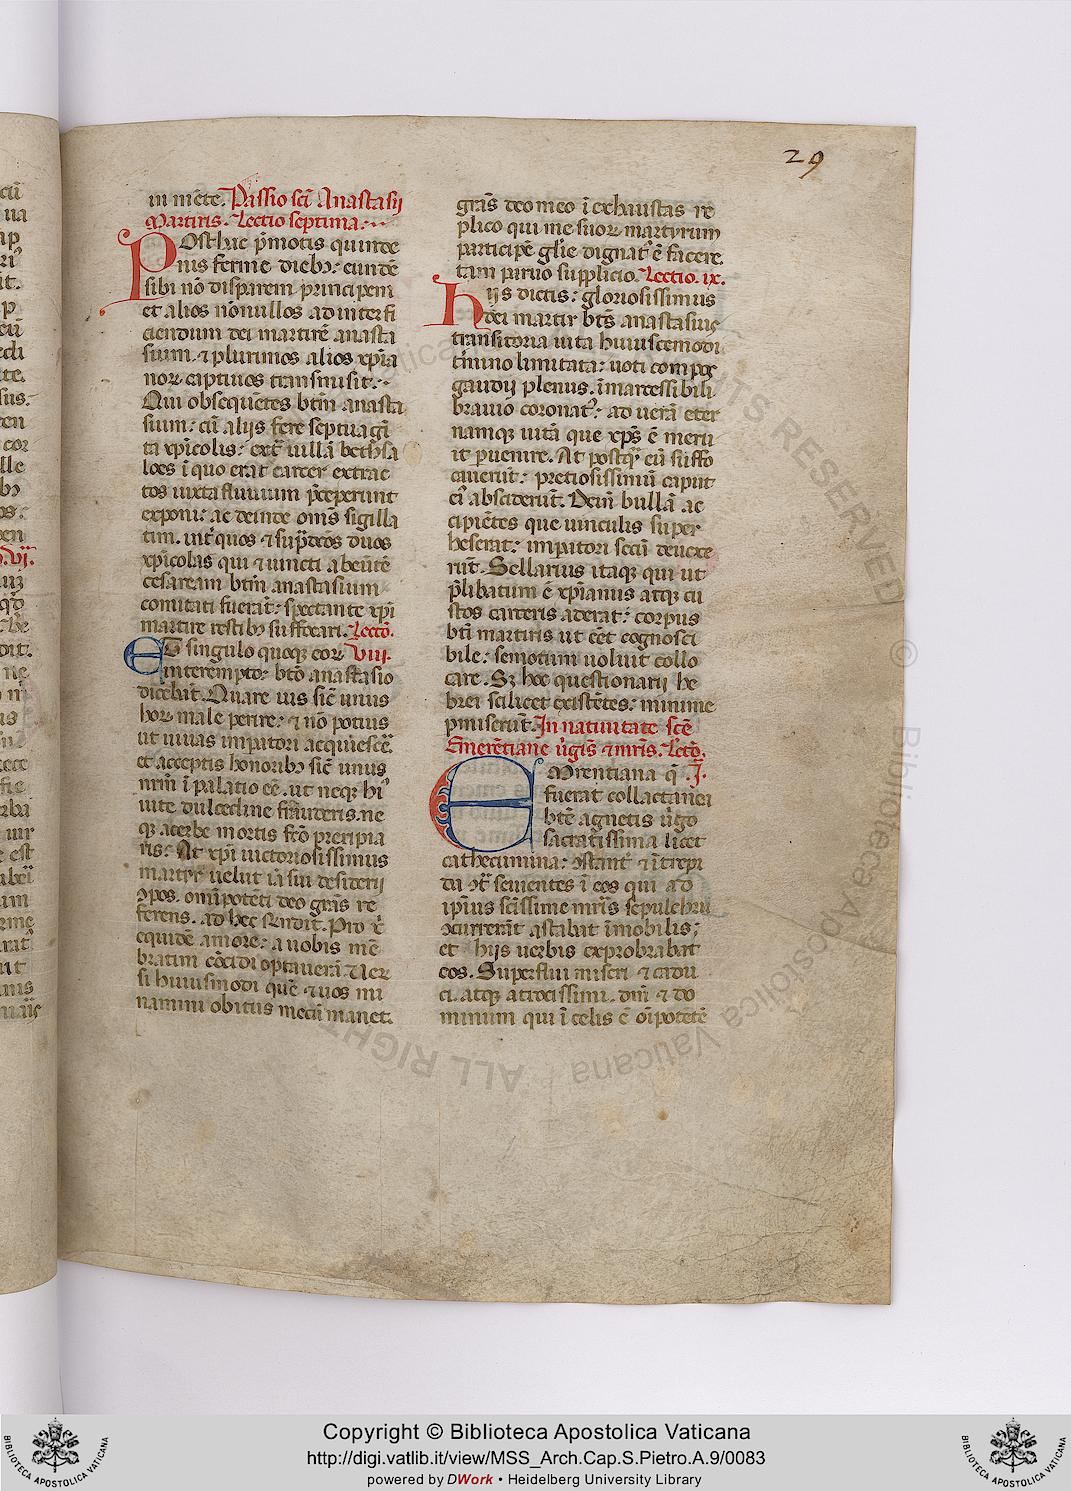 29
in mēte. Passio sci Anastasij
martiris. Lectio septima.
Post huc p̄motis quinde
nis ferme diebꝫ: eundē
sibi nō disparem principem
et alios nōnullos ad interfi
ciendum dei martirē anasta
sium. ⁊ plurimos alios xp̄ia
noꝝ captiuos transmisit.
Qui obsequētes btm̄ anasta
sium: cū alijs fere septuagī
ta xp̄icolis: ext̄ uillā bethsa
loes ī quo erat carcer extrac
tos iuxta fluuium p̄ceperunt
exponi: ac deinde om̄s sigilla
tim. int̄ quos ⁊ sup̄dc̄os duos
xp̄icolas qui ⁊ uincti abeūtē
cesaream btm̄ anastasium
comitati fuerāt: spectante xp̄i
martire restibꝫ suffocari. Lectō.
Et singulo quoqꝫ eoꝝ VIII.
interempto: btō anastasio
dicebāt. Quare uis sic̄ unus
hoꝝ male perire: ⁊ nō potius
ut uiuas impatori acquiescē.
et acceptis honoribꝫ sic̄ unus
nr̄m ī palatio eē. ut neqꝫ hi
uite dulcedine frauderis. ne
qꝫ acerbe mortis frō precipia
ris: At xp̄i uictoriosissimus
martyr uelut iā sui desiderij
ꝯpos. om̄ipotēti deo grās re
ferens. ad hec r̄ndit. Pro x̄
equidē amore: a uobis mē
bratim cōcidi optauerā. Uer
si huiusmodi quē ⁊ uos mi
namini obitus mecū manet.
grās deo meo ī exhaustas re
plico qui me suoꝝ martyrum
participē glīe dignat᷒ ē facere.
tam paruo supplicio. Lectio. ix.
Hijs dictis: gloriosissimus
dei martir bt̄s anastasius
transitoria uita huiuscemodi
t̄mino limitata: uoti compos
gaudij plenus. īmarcessibili
brauio coronat᷒: ad uerā eter
namqꝫ uitā que xp̄s ē meru
it puenire. At postqꝫ eū suffo
cauerūt: pretiosissimū caput
ei᷒ absciderūt. Dein̄ bullā ac
cipiētes que uinculis super
heserat: impatori secū deuexe
rūt. Sellarius itaqꝫ qui ut
p̄libatum ē xp̄ianus atqꝫ cu
stos carceris aderat: corpus
bt̄i martiris ut eēt cognosci
bile: semotim uoluit collo
care. Sꝫ hoc questionarij he
brei scilicet existētes: minime
pmiserūt. In natiuitate scē
Emerētiane ūgis̄ ⁊ mr̄is. Lectō.
Emerentiana q̄ .I.
fuerat collactanea
btē agnetis ūgo
sacratissima licet
cathecumina: ꝯstant᷒ ⁊ ītrepi
da ꝯt̄ seuientes ī eos qui ad
ip̄ius scīssime mr̄is sepulchrū
ꝯcurrerāt astabat īmobilis;
et hijs uerbis exprobrabat
eos. Superflui miseri ⁊ cadu
ci. atqꝫ atrocissimi. dm̄ ⁊ do
minum qui ī celis ē oīpotētē
ALL RIGHTS RESERVED
© Biblioteca Apostolica Vaticana
Copyright © Biblioteca Apostolica Vaticana
http://digi.vatlib.it/view/MSS_Arch.Cap.S.Pietro.A.9/0083
powered by DWork • Heidelberg University Library
BIBLIOTECA APOSTOLICA VATICANA
BIBLIOTECA APOSTOLICA VATICANA